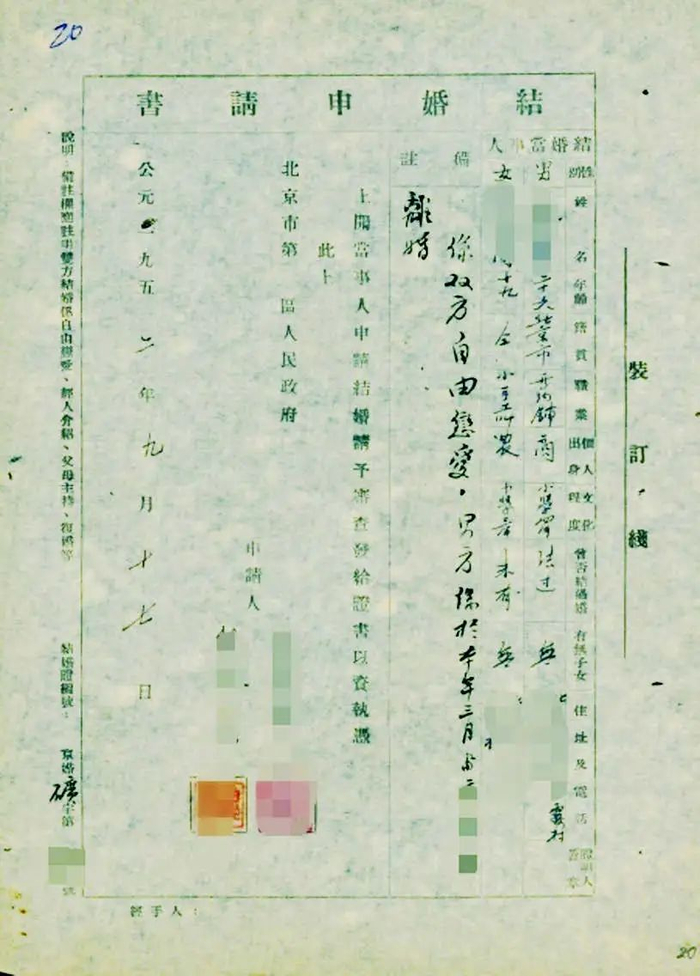 20
裝訂綫
結婚申請書
結婚當事人
性別 姓名 年齡 籍貫 職業 個人出身 文化程度 曾否結過婚 有無子女 住址及電話 證明人蓋章
男 二十六 北京市 商 小學 結過 無
女 十九 仝 農 小學 未有 無
備註
係双方自由戀愛,男方係於本年三月與
離婚
上開當事人申請結婚請予審查發給證書以資執憑
此上
北京市第 區人民政府
申請人
公元一九五二年九月十七日
說明:備註欄應註明雙方結婚係自由戀愛、經人介紹、父母主持、復婚等
結婚證編號: 京婚礦字第 號
經手人:
20